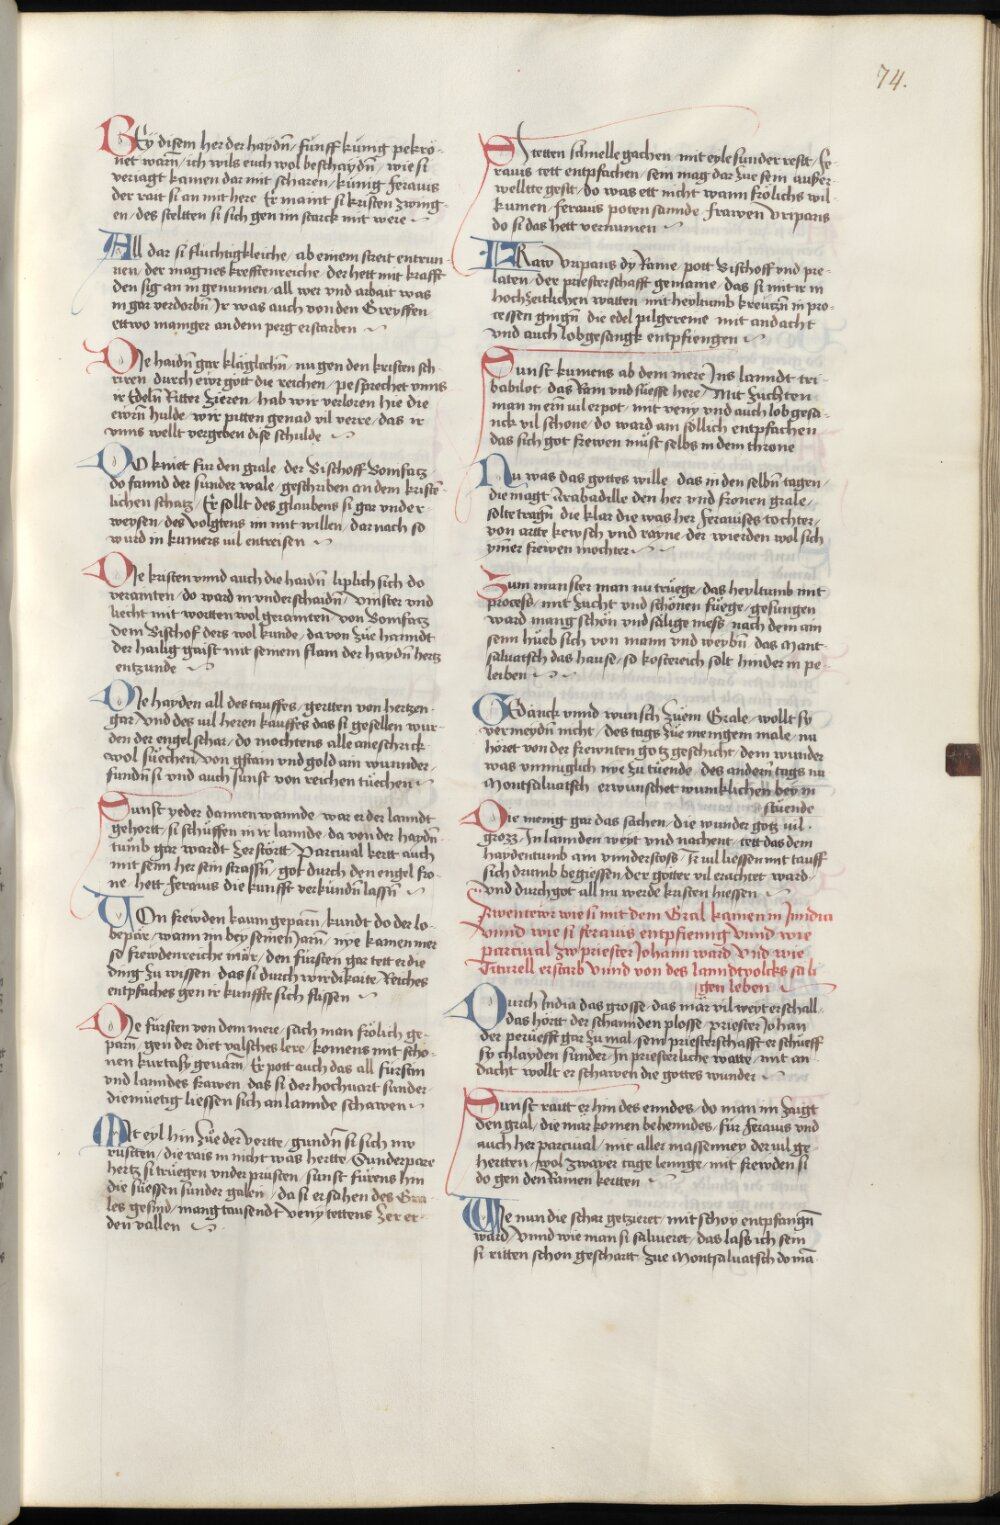 74.
BEy disem her der haydn̄ / fünff künig pekrö-
net warn̄ / ich wils euch wol beschaydn̄ / wie si
veriagt kamen dar mit scharen / künig feravis
der rait si an mit here Er maint si kristen zwing-
en / des stellten si sich gen im starck mit were
All dar si fluchtigkleiche / ab einem streit entrun-
nen / der magnes krefftenreiche / der hett mit krafft
den sig an in genumen / all wer vnd arbait was
in gar verdorbn̄ / Ir was auch von den Greyffen
ettwo maniger an dem perg erstarben
Die haidn̄ gar kläglichn̄ / nu gen den kristen sch-
riren / durch ewr gott die reichen / pesprechet vnns
ir Edeln̄ Ritter zieren / hab wir verloren hie die
ewrn̄ hulde / wir pitten genad vil verre / das ir
vnns wellt vergeben dise schulde
DO kniet für den grale / der Bischoff Bonifatz
do fannd der sunder wale / geschriben an dem kristē-
lichen schatz / Er sollt des glaubens si gar vnder-
weysen / des volgtens im mit willen / dar nach so
wurd in kumers vil entreisen
Die kristen vnnd auch die haidn̄ liplich sich do
verainten / do ward in vnderschaidn̄ / vinster vnd
liecht mit wortten wol gerainten / von Bonifatz
dem Bischof ders wol kunde / da von zue hanndt
der hailig gaist mit seinem flam der haydn̄ hertz
entzunde
Die hayden all des tauffes / gertten von hertzen
gar / vnd des vil heren kauffes das si gesellen wur-
den der engel schar / do mochtens alle aneschrick
wol suechen / von gstain vnd gold ain wunder
fundn̄ si vnd auch sunst von reichen tuechen
Sunst yeder dannen wannde / war er der lanndt
gehortt / si schüffen in ir lannde / da von der haydn̄
tumb gar wardt zerstörtt / Parcival kertt auch
mit seim her sein strassn̄ / got durch den engel fro-
ne / hett feravis die kunfft verkündn̄ lassn̄
VOn frewden kaum geparn̄ / kundt do der lo-
bepär / wann im bey seinen Jarn̄ / nye kamen mer
so frewdenreiche mär / den fürsten gar tett er die
ding zu wissen / das si durch wirdikaite Reiches
entpfaches gen ir kunffte sich flissen
Die fürsten von dem mere / sach man frölich ge-
parn̄ / gen der diet valsches lere / komens mit scho-
nen kurtasy gevarn̄ / Er pott auch das all fürstin
vnd lanndes frawen / das si der hochvart sunder
diemüetig liessen sich an lannde schawen
Mit eyl hin zue der vortte / gundn̄ si sich nw
rüstten / die rais in nicht was hertte / Sunder pare
hertz si truegen vnder prüsten / sunst fürens hin
die süessen sunder galen / da si ersahen des Gra-
les gesind / mang tausendt veny tettens zer er-
den vallen
SI tetten schnelle gachen / mit eyle sunder rest / fe-
ravis tett entpfachen / sein mag dar zue sein ausser-
wellte gest / do was ett nicht wann frölichs wil-
kumen / feravis poten sannde / frawen vripans
do si das hett vernumen
FRaw vripans dy Raine / pott Bischoff vnd pre-
laten / der priesterschafft gemaine / das si mit ir in
hochzeitlichen watten / mit heyltumb kreutzn̄ in pro-
cessen gingn̄ die edel pilgereine mit andacht
vnd auch lobgesangk entpfiengen
Sunst kumens ab dem mere / Ins lanndt tri-
babilot das Rain vnd süesse here / Mit zuchten
man in ern̄ vil erpot / mit veny vnd auch lobgesa-
nck vil schone / do ward am sollich entpfachen
das sich got frewen müst selbs in dem throne
Nu was das gottes wille / das in den selbn̄ tagen
die magt Arabadille den her vnd fronen grale
solte tragn̄ / die klar die was her feravises tochter
von artte kewsch vnd rayne / der wierden wol sich
ymer frewen mochter
Zum munster man nu truege / das heyltumb mit
procesß / mit zucht vnd schönen fuege / gesungen
ward mang schön vnd sälige mess nach dem ain
senn hueb sich von mann vnd weybn̄ / das Mont-
salvatsch das hause / so kostereich solt hinder in pe-
leiben
GEdanck vnnd wunsch zuem Grale / wollt sy
vermeydn̄ nicht / des tags zue mengem male / nu
höret von der frewnten gotz geschicht / dem wunder
was vnmuglich nye zu tuende / des andern̄ tags nu
Montsalvatsch erwunschet wunklichen bey in
stuende
Die menig gar das sachen / die wunder gotz vil
grozz / In lannden weyt vnd nachent / tett das dem
haydentumb ain vnnderstoss / Ir vil liessen mit tauff
sich drumb begiessen / der götter vil erachtet ward
vnd durch got all nu werde kristen hiessen
Awentewr wie si mit dem Gral kamen in Inndia
vnnd wie si feravis entpfienng vnnd wie
parcival zw priester Johann ward vnd wie
Titurell erstarb vnnd von des lanndtvolcks säli-
gen leben
Durch India das grosse / das mär vil weyt erschall
das hörtt der schannden plosse / priester Johan
der perüefft gar zu mal / sein priesterschafft er schueff
sy chlayden sunder / In priesterliche watte / mit an-
dacht wollt er schawen die gottes wunder
Sunst rait er hin des enndes / do man im zaigt
den gral / die mär komen behenndes / für feravis vnd
auch her parcival / mit aller massenney der vil ge-
hertten / wol zwayer tage lennge / mit frewden si
do gen den Rainen kertten
Wie nun die schar getzieret / mit schoy entpfangn̄
ward / vnnd wie man si salueret / das lass ich sein
si ritten schon geschartt / zue Montsalvatsch do mā